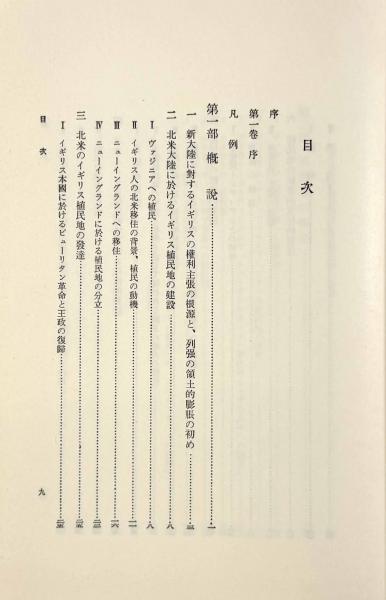 目次
序
第一卷 序
凡例
第一部 概說……一
一 新大陸に對するイギリスの權利主張の根源と、列强の領土的膨脹の初め……三
二 北米大陸に於けるイギリス植民地の建設……八
I ヴァジニアへの植民……八
II イギリス人の北米移住の背景、植民の動機……一一
III ニューイングランドへの移住……一六
IV ニューイングランドに於ける植民地の分立……
三 北米のイギリス植民地の發達……
I イギリス本國に於けるピューリタン革命と王政の復歸……
目次
九